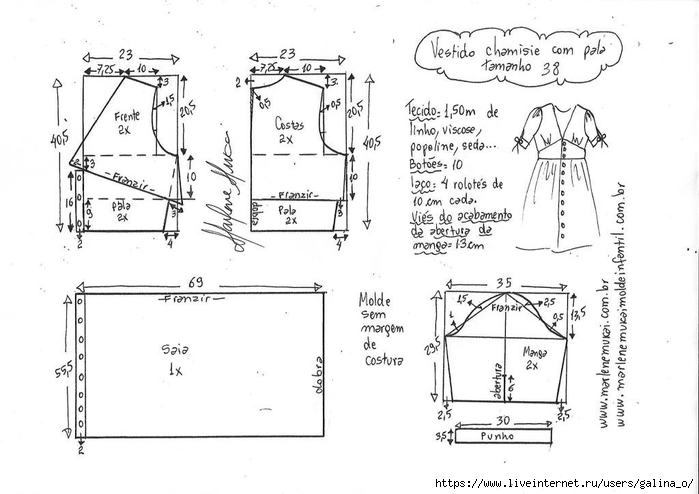 Vestido chamisie com pala
tamanho 38
23
7,25
10
3
1,5
20,5
40,5
Frente
2x
2
3
Franzir
10
16
9
Pala
2x
3
2
4
23
7,25
10
2
3
0,5
0,5
20,5
40,5
Costas
2x
10
Franzir
dobra
Pala
2x
3
4
Marlene Mukai
Tecido= 1,50m de
linho, viscose,
popeline, seda...
Botões= 10
Laço= 4 rolotés de
10 cm cada.
Viés do acabamento
da abertura da
manga= 13cm
69
Franzir
59,5
Saia
1x
dobra
2
Molde
sem
margem
de
costura
35
1,5
2,5
Franzir
1
0,5
13,5
29,5
Manga
2x
abertura
6
2,5
2,5
30
3,5
Punho
www.marlenemukai.com.br
www.marlenemukaimoldeinfantil.com.br
https://www.liveinternet.ru/users/galina_o/